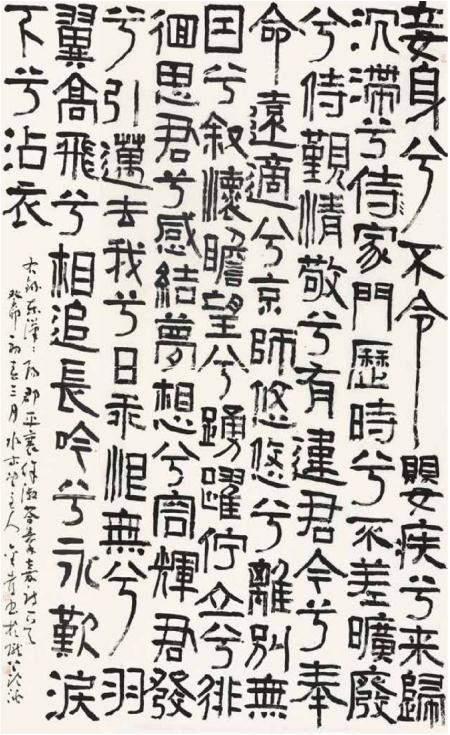 妾身兮不令嬰疾兮来歸
沉滯兮侍家門歷時兮不差曠廢
兮侍覲情敬兮有違君今兮奉
命遠適兮京師悠悠兮離別無
因兮叙懷瞻望兮踴躍佇立兮徘
徊思君兮感結夢想兮容輝君發
兮引邁去我兮日乖恨無兮羽
翼高飛兮相追長吟兮永歎淚
下兮沾衣
右東漢郡平襄徐淑答秦嘉诗
癸卯三月主人書於